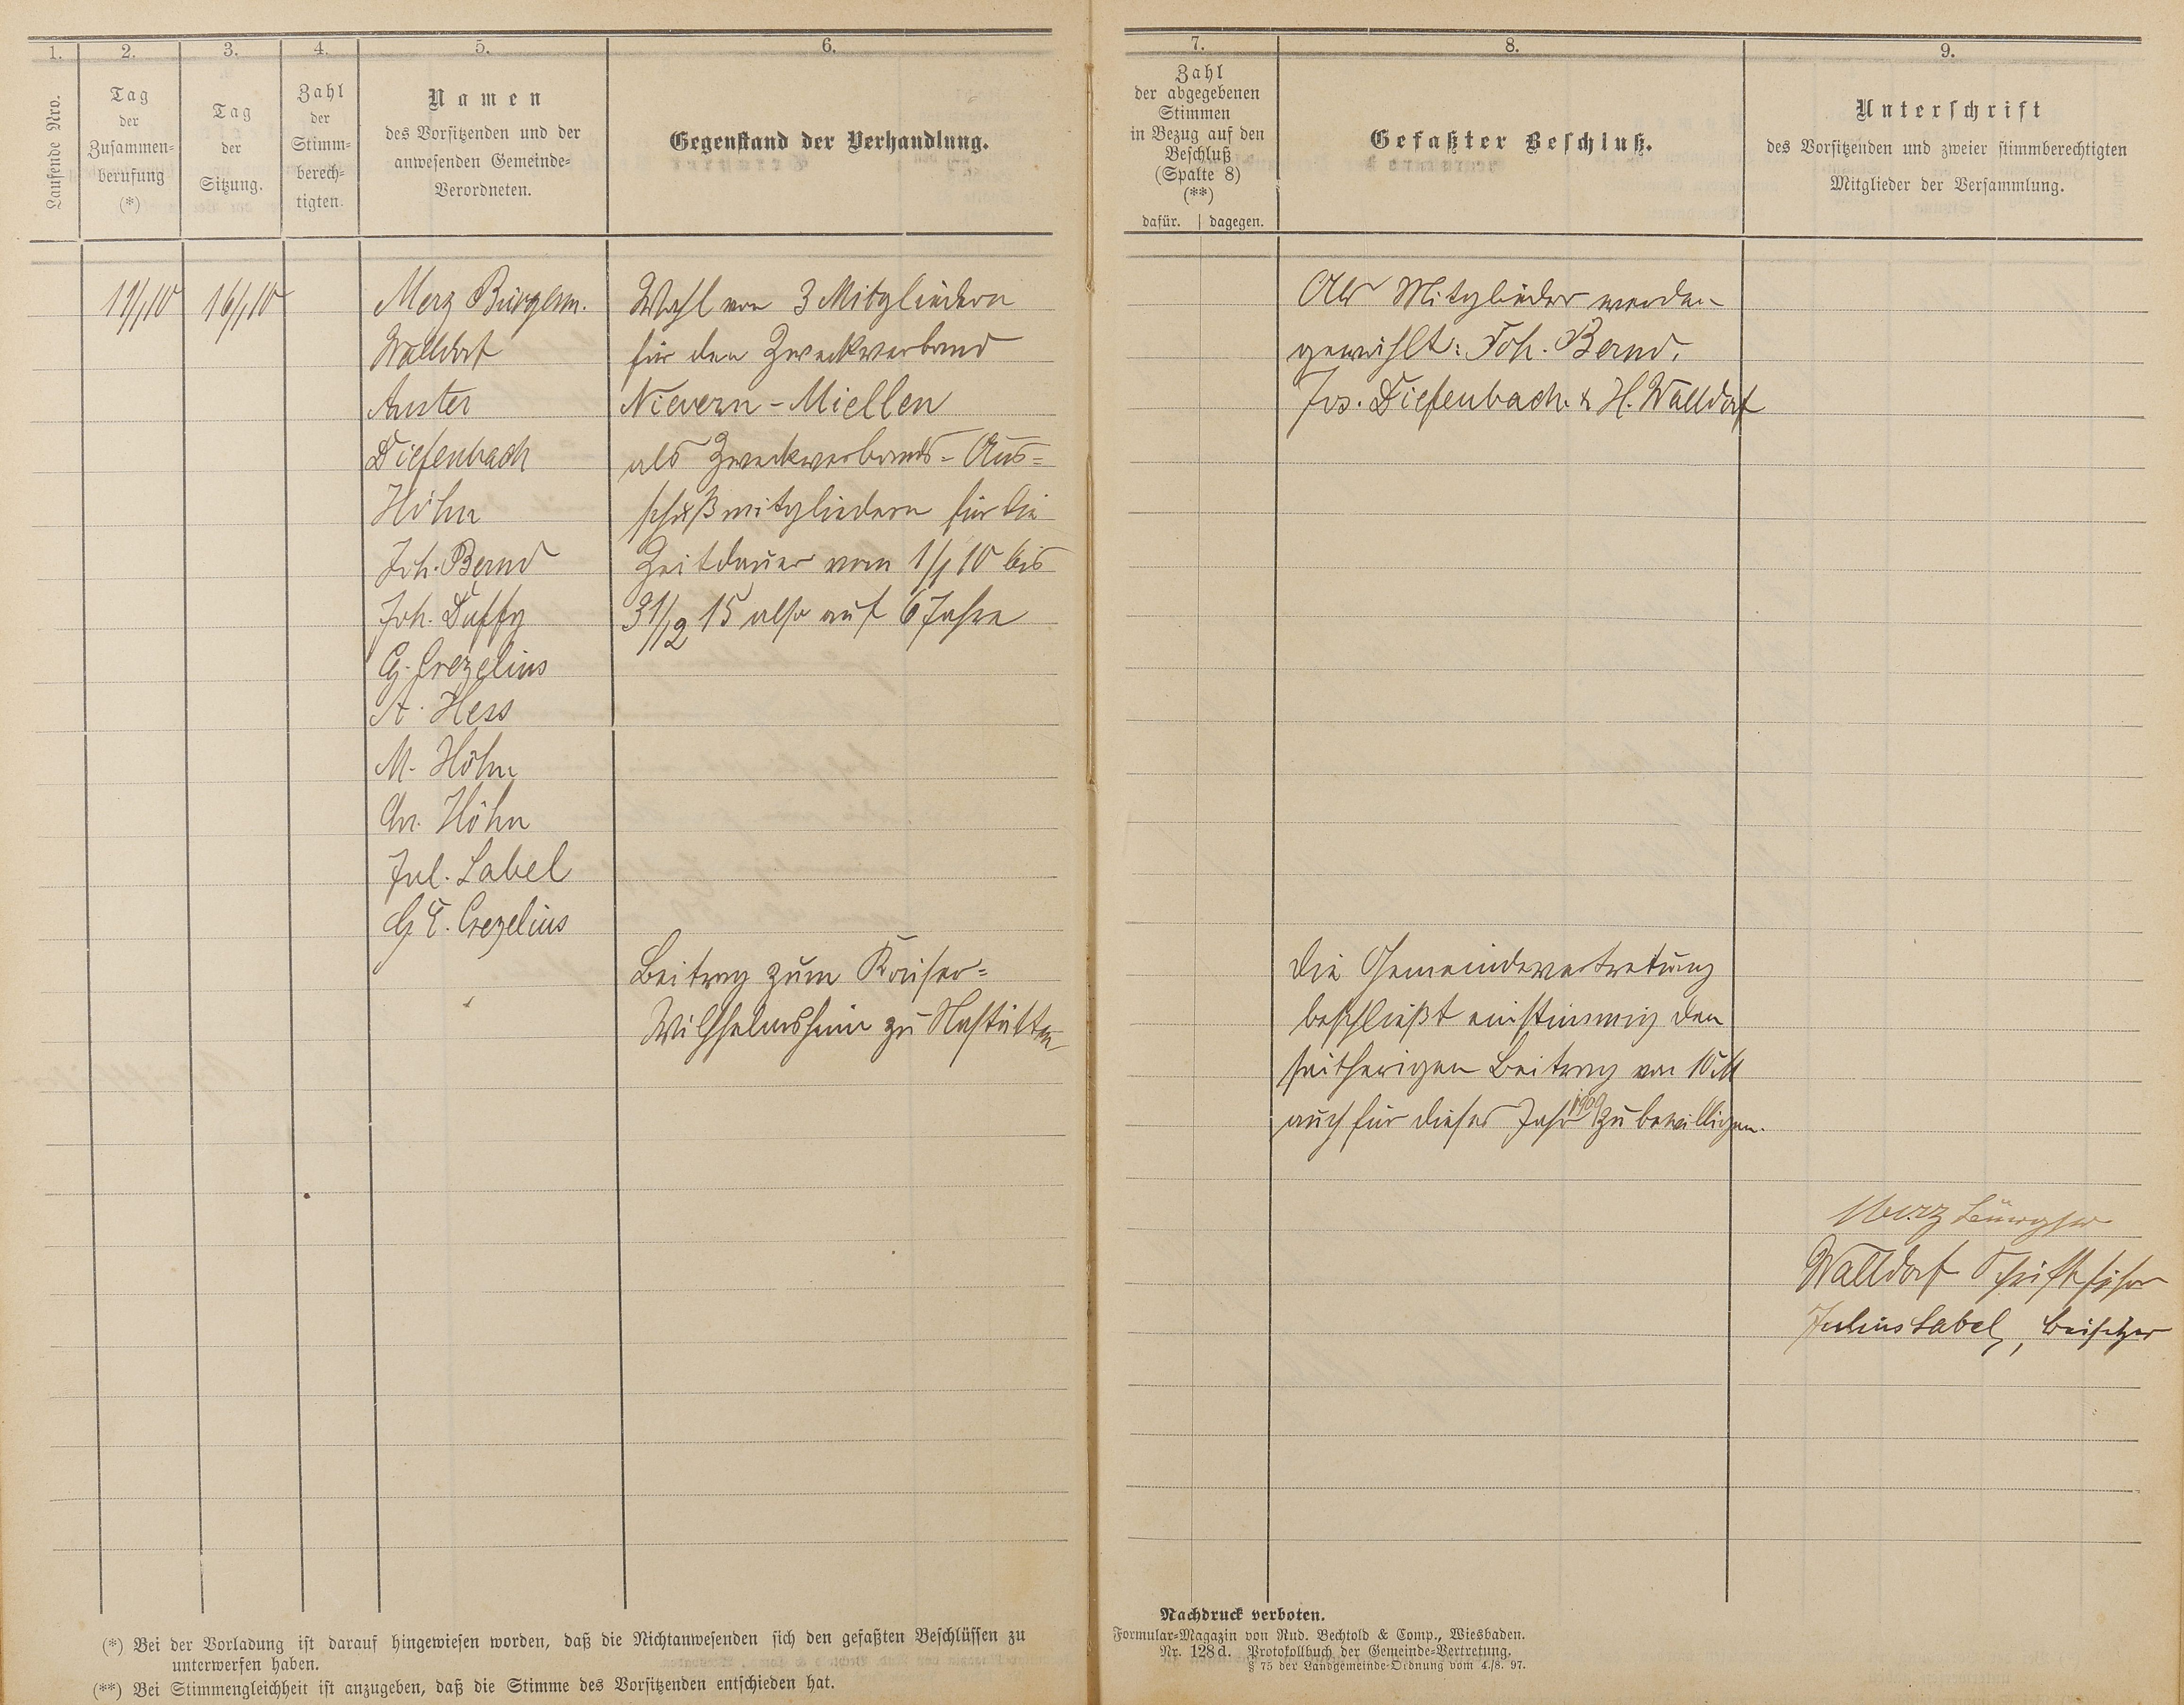 1.
2.
3.
4.
5.
6.
Laufende Nro.
Tag
der
Zusammen=
berufung
(*)
Tag
der
Sitzung.
Zahl
der
Stimm=
berech=
tigten.
Namen
des Vorsitzenden und der
anwesenden Gemeinde=
Verordneten.
Gegenstand der Verhandlung.
16/1 10
Merz Bürgerm.
Walldorf
Anster
Diefenbach
Höhn
Joh. Bernd
Joh. Duffy
G. Crezelius
A. Hess
M. Höhn
Chr. Höhn
Jul. Label
G. E. Crezelius
Wahl von 3 Mitgliedern
für den Zweckverband
Nievern - Miellen
als Zweckverbands- Aus=
schußmitgliedern für die
Zeitdauer vom 1/1 10 bis
31/12 15 also auf 6 Jahre
Beitrag zum Kaiser=
Wilhelmsheim zu Nastätten
(*) Bei der Vorladung ist darauf hingewiesen worden, daß die Nichtanwesenden sich den gefaßten Beschlüssen zu
unterwerfen haben.
(**) Bei Stimmengleichheit ist anzugeben, daß die Stimme des Vorsitzenden entschieden hat.
7.
8.
9.
Zahl
der abgegebenen
Stimmen
in Bezug auf den
Beschluß
(Spalte 8)
(**)
dafür. | dagegen.
Gefaßter Beschluß.
Unterschrift
des Vorsitzenden und zweier stimmberechtigten
Mitglieder der Versammlung.
Als Mitglieder werden
gewählt: Joh. Bernd,
Jos. Diefenbach & H. Walldorf
Die Gemeindevertretung
beschließt einstimmig den
seitherigen Beitrag von 10 M
auch für dieses Jahr 1909 zu bewilligen.
Merz Bürgerm
Walldorf Schriftführer
Julius Label, Beisitzer
Nachdruck verboten.
Formular=Magazin von Rud. Bechtold & Comp., Wiesbaden.
Nr. 128d. Protokollbuch der Gemeinde=Vertretung.
§ 75 der Landgemeinde=Ordnung vom 4./8. 97.